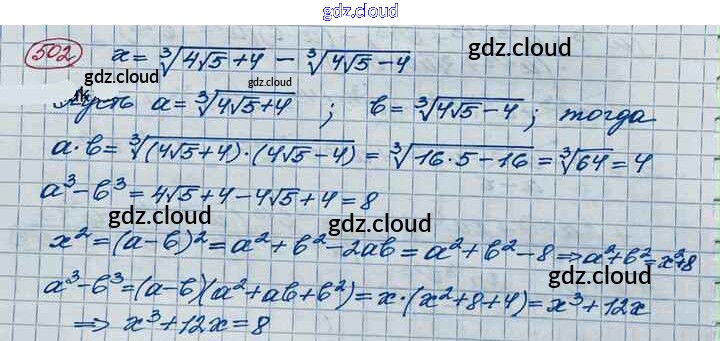 gdz.cloud
502 x = ∛(4√5+4) − ∛(4√5−4)
gdz.cloud
gdz.cloud
gdz.cloud
Пусть a = ∛(4√5+4) ; b = ∛(4√5−4) ; тогда
a·b = ∛((4√5+4)·(4√5−4)) = ∛(16·5−16) = ∛64 = 4
a³−b³ = 4√5+4−4√5+4 = 8
gdz.cloud
gdz.cloud
x² = (a−b)² = a²+b²−2ab = a²+b²−8 ⇒ a²+b² = x²+8
gdz.cloud
a³−b³ = (a−b)(a²+ab+b²) = x·(x²+8+4) = x³+12x
gdz.cloud
⇒ x³+12x = 8